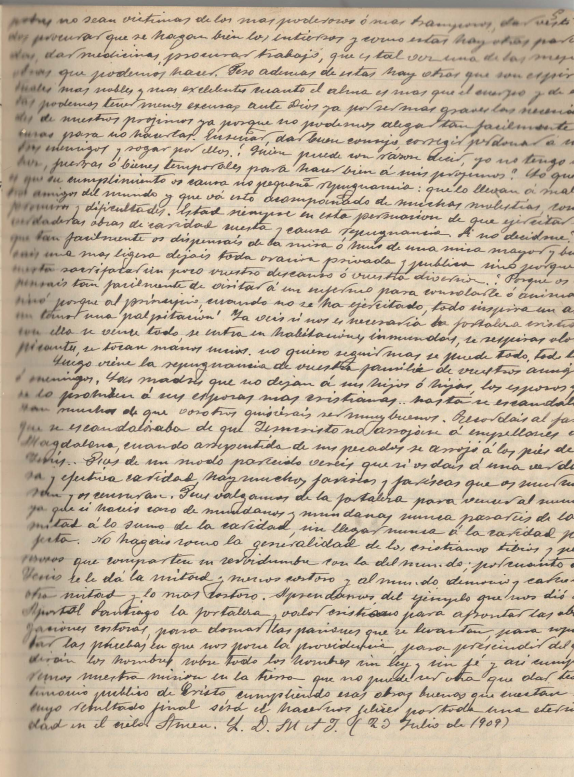 pobres no sean victimas de los mas poderosos ó mas tramposos, dar vesti
dos procurar que se hagan bien los entierros y como estas hay otras par
das, dar medicinas, procurar trabajo, que es tal vez una de las mejo
obras que podemos hacer. Pero ademas de estas hay otras que son espiri
tuales mas nobles y mas excelentes cuanto el alma es mas que el cuerpo y de
podemos tener menos escusas ante Dios ya por ser mas graves las necesida
des de nuestros projimos ya porque no podemos alegar tan facilmente
escusas para no hacerlas. Enseñar, dar buen consejo, corregir perdonar a n
tros enemigos y rogar por ellos. ¿Quien puede con razon decir, yo no tengo
fuerzas ó bienes temporales para hacer bien á mis projimos?
que su cumplimiento os causa no pequeña repugnancia: que lo llevan á mal
los amigos del mundo y que va esto acompañado de muchas molestias, com
promisos y dificultades. Estad siempre en esta persuasion de que ejercitar
verdaderas obras de caridad cuesta y causa repugnancia. Á no decidme
que tan facilmente os dispensais de la misa ó
mas ligera dejais toda oracion privada y publica sino porque
cuesta sacrificar un poco vuestro descanso ó vuestra diversion. ¿Porque os
pensais tan facilmente de visitar á un enfermo para consolarle ó anima
sino porque al principio, cuando no se ha ejercitado, todo inspira un
un temor una palpitacion? Ya veis si nos es necesaria la fortaleza cristia
con ella se vence todo se entra en habitaciones inmundas, se respiras olo
picantes, se tocan manos sucias. no quiero seguir mas se puede todo, todo
Luego viene la repugnancia de vuestra familia de vuestros amig
ó enemigos. Las madres que no dejan á sus hijos ó hijas, los esposos q
se lo prohiben á sus esposas mas cristianas.. hasta se escandali
zan muchos de que vosotros quisierais ser muy buenos. Recordais al far
que se escandalizaba de que Jesucristo no arrojase á empellones
Magdalena, cuando arrepentida de sus pecados se arrojó á los pies de
Jesús.. Pues de un modo parecido vereis que si os dais á una verda
ra y efectiva caridad hay muchos fariseos y fariseas que os murmu
ran y os censuran. Pues valgamos de la fortaleza para vencer al mun
ya que si haceis caso de mundanos y mundanas nunca pasareis de la
mitad á lo sumo de la caridad, sin llegar nunca á la caridad p
fecta. No hagais como la generalidad de los cristianos tibios y p
rosos que comparten su servidumbre con la del mundo, por cuanto á
Jesús se le dá la mitad y menos costoso y al mundo demonio y carne
otra mitad y lo mas costoso. Aprendamos del ejemplo que nos dió
Apostol Santiago la fortaleza y valor cristiano para afrontar las obli
gaciones costosas, para domar las pasiones que se levantan, para sopor
tar las pruebas en que nos pone la providencia, para prescindir del q
dirán los hombres, sobre todo los hombres sin ley y sin fé y asi cumpli
remos nuestra mision en la tierra que no puede ser otra que dar tes
timonio publico de Cristo cumpliendo esas obras buenas que cuestan
cuyo resultado final será el hacernos felices por toda una eterni
dad en el cielo. Amen. L. D. M. A J. (23 Julio de 1909)